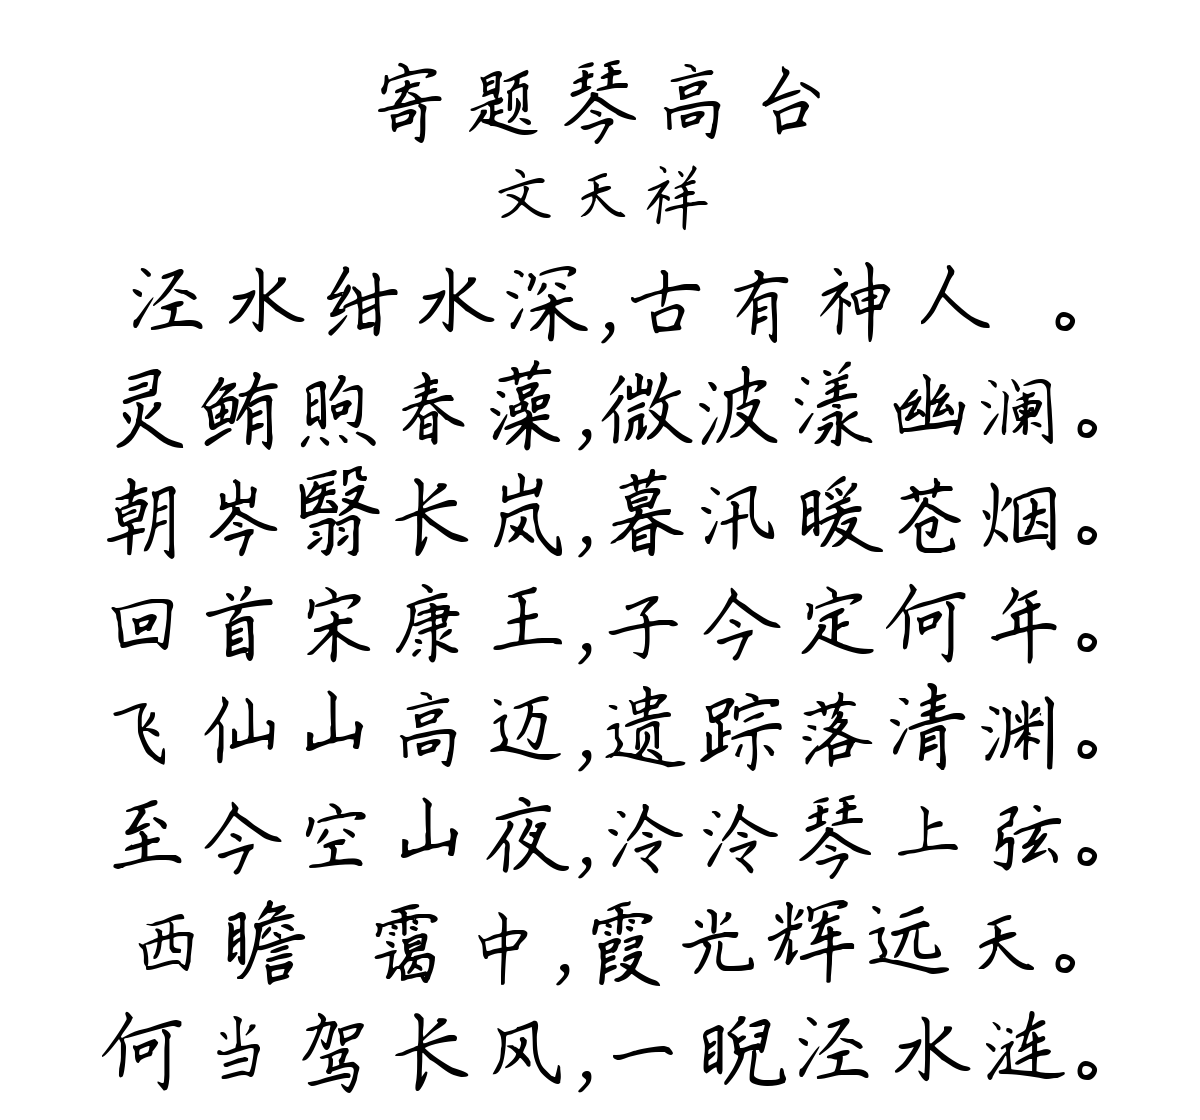 寄题琴高台
文天祥
泾水绀水深,古有神人 。
灵鲔煦春藻,微波漾幽澜。
朝岑翳长岚,暮汛暖苍烟。
回首宋康王,子今定何年。
飞仙山高迈,遗踪落清渊。
至今空山夜,泠泠琴上弦。
西瞻 霭中,霞光辉远天。
何当驾长风,一睨泾水涟。